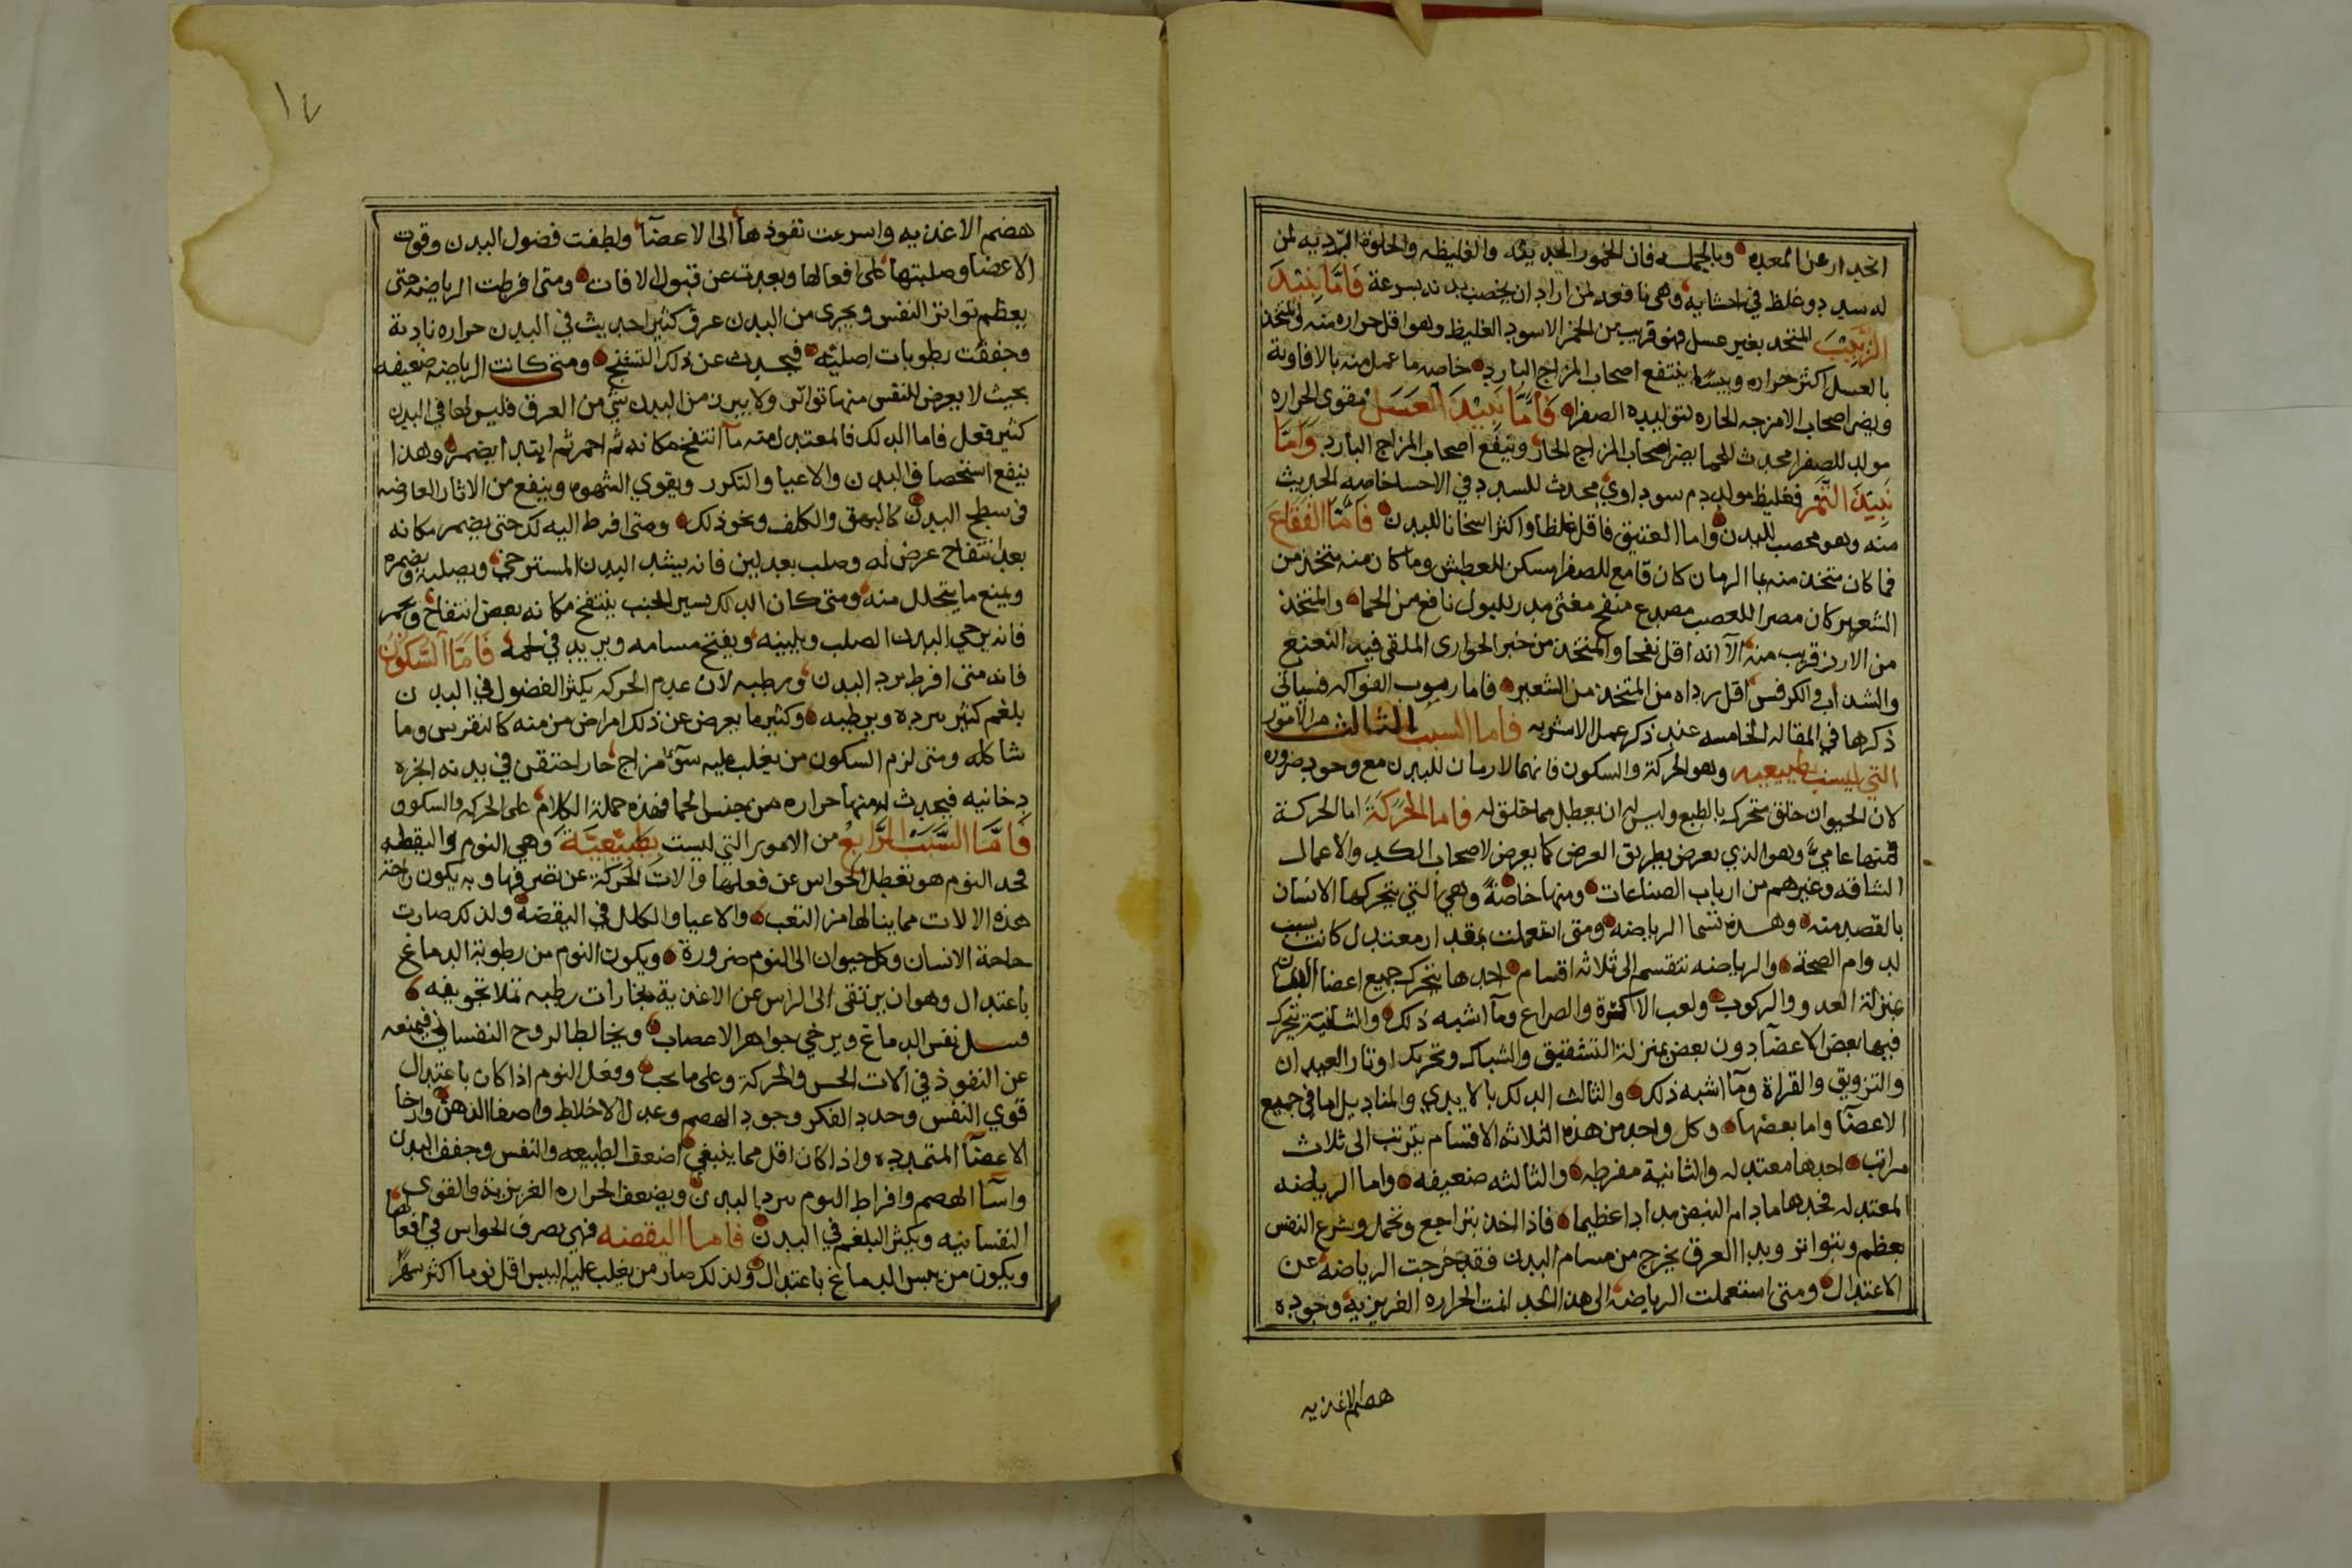 انحدار عن المعده وبالجمله فان الخمور الحديثه والغليظه والحلوة الرديه لمن
له سدد وغلظ في احشايه وهى نافعه لمن اراد ان يخصب بدنه بسرعة فَامَّا نَبِيْدَ
الزَّبِيْبَ المتخد بغير عسل فهو قريب من الخمر الاسود الغليظ وهو اقل حراره منه والمتخد
بالعسل اكثر حراره ويبسًا ينتفع اصحاب المزاج البارد خاصه ما عمل منه بالافاوية
ويضر اصحاب الامزجه الحاره لتوليده الصفرا فَامَّا نَبِيْدَ الْعَسَل مقوى الحراره
مولد للصفرا محدث للحما يضر اصحاب المزاج الحار وينفع اصحاب المزاج البارد وَامَّا
نَبِيْدَ التَّمَر فغليظ مولد دم سوداوي محدث للسدد في الاحسا خاصه الحديث
منه وهو مخصب للبدن واما العتيق فاقل غلظا واكثر اسخانا للبدن فَامَّا الفَقَاعَ
فما كان متخذ منه بما الرمان كان قامع للصفرا مسكن للعطش وما كان منه متخذ من
الشعير كان مضرا للعصب مصدع منفخ مغثى مدر للبول نافع من الحما والمتخذ
من الارز قريب منه الا انه اقل نفخا والمتخذ من خبز الحوارى الملقى فيه النعنع
والشداب والكرفس اقل رداه من المتخذ من الشعير فاما ربوب الفواكه فسياتي
ذكرها في المقاله الخامسه عند ذكر عمل الاشربه فاما السبب الثالث من الامور
التي ليست بطبيعيه وهو الحركة والسكون فانهما لازمان للبدن مع وجود ضروره
لان الحيوان خلق متحرك بالطبع وليس له ان يعطل مما خلق له فاما الحَرَكَة اما الحركة
فمنها عامي وهو الذي يعرض بطريق العرض كما يعرض لاصحاب الكد والاعمال
الشاقه وغيرهم من ارباب الصناعات ومنها خاصة وهي التي يتحركها الانسان
بالقصد منه وهذه تسما الرياضه ومتى استعملت بمقدار معتدل كانت سبب
لدوام الصحة والرياضه تنقسم الى ثلاثه اقسام احدها يتحرك جميع اعضا البدن
بمنزلة العدو والركوب ولعب الاكرة والصراع وما اشبه ذلك والثانية تتحرك
فيها بعض الاعضآ دون بعض بمنزلة التشقيق والشباك وتحريك اوتار العيدان
والتزويق والقراة وما اشبه ذلك والثالث الدلك بالايدي والمناديل اما في جميع
الاعضآ واما بعضها وكل واحد من هذه الثلاثه الاقسام يترتب الى ثلاث
مراتب احدها معتدله والثانية مفرطه والثالثه ضعيفه واما الرياضه
المعتدله فحدها مادام النبض مدادا عظيما فاذا اخذ يتراجع ويخمل ويسرع النفس
بعظم ويتواتر وبدا العرق يخرج من مسام البدن فقد خرجت الرياضه عن
الاعتدال ومتى استعملت الرياضه الى هذا الحد انمت الحراره الغريزيه وجوده
هضم الاغذيه
١٧
هضم الاغذيه واسرعت نفوذها الى الاعضآ ولطفت فضول البدن وقوت
الاعضا وصلبتها على افعالها وبعدت عن قبول الافات ومتى افرطت الرياضه حتى
يعظم تواتر النفس ويجرى من البدن عرق كثير احديث في البدن حراره نارية
وجففت رطوبات اصليه فيحدث عن ذلك التشنج ومتى كانت الرياضه ضعيفه
بحيث لا يعرض للنفس منها تواتر ولا يبرز من البدن شي من العرق فليس لها في البدن
كثير فعل فاما الدلك فالمعتدل منه مآ انتفخ مكانه ثم احمر ثم ابتدا يضمر وهذا
ينفع استحصاف البدن والاعيا والتكور ويقوي الشهوه وينفع من الاثار العارضه
فى سطح البدن كالبهق والكلف ونحو ذلك ومتى افرط اليه لك حتى يضمر مكانه
بعد انتفاخ عرض له وصلب بعد لين فانه يشد البدن المسترخي ويصلبه ويضمره
ويمنع ما يتحلل منه ومتى كان الدلك يسير الجنب ينتفخ مكانه بعض انتفاخ ويحمر
فانه يرخي البدن الصلب ويلينه ويفتح مسامه ويزيد في لحمه فَامَّا السَّكُوْنُ
فانه متى افرط برد البدن ورطبه لان عدم الحركه يكثر الفضول في البدن
بلغم كثير يبرده ويرطبه وكثير ما يعرض عن ذلك امراض مزمنه كالنقرس وما
شاكله ومتى لزم السكون من يغلب عليه سوء مزاج حار احتقن في بدنه ابخره
دخانيه فيحدث له منها حراره من جنس الحما فهذه جملة الكلام على الحركه والسكون
فَامَّا السَّبَبُ الرَّابِعُ من الامور التي ليست بطَبِيْعِيَّة وهي النوم واليقظه
فحد النوم هو تعطل الحواس عن فعلها والات الحركة عن تصرفها وبه يكون راحة
هذه الالات مما ينالها من التعب والاعيا والكلل في اليقضه ولذلك صارت
حاجة الانسان وكل حيوان الى النوم ضرورة ويكون النوم من رطوبة الدماغ
باعتدال وهو ان يرتقى الى الراس عن الاغذية بخارات رطبه تملا تجويفه
فسل نفس الدماغ ويرخي جواهر الاعصاب ويخالطا لروح النفساني فيمنعه
عن النفوذ في الات الحس والحركة وعلى ما يحب وفعل النوم اذا كان باعتدال
قوي النفس وحدد الفكر وجود الهضم وعدل الاخلاط واصفا الذهن وارخا
الاعضآ المتمدده واذا كان اقل مما ينبغي اضعف الطبيعه والنفس وجفف البدن
واسآ الهضم وافراط النوم يبرد البدن ويضعف الحراره الغريزية والقوى
النفسانيه ويكثر البلغم في البدن فاما اليقضه فهي تصرف الحواس في افعالها
ويكون من يبس الدماغ باعتدال ولذلك صار من يغلب عليه اليبس اقل نوما اكثر سهرًا